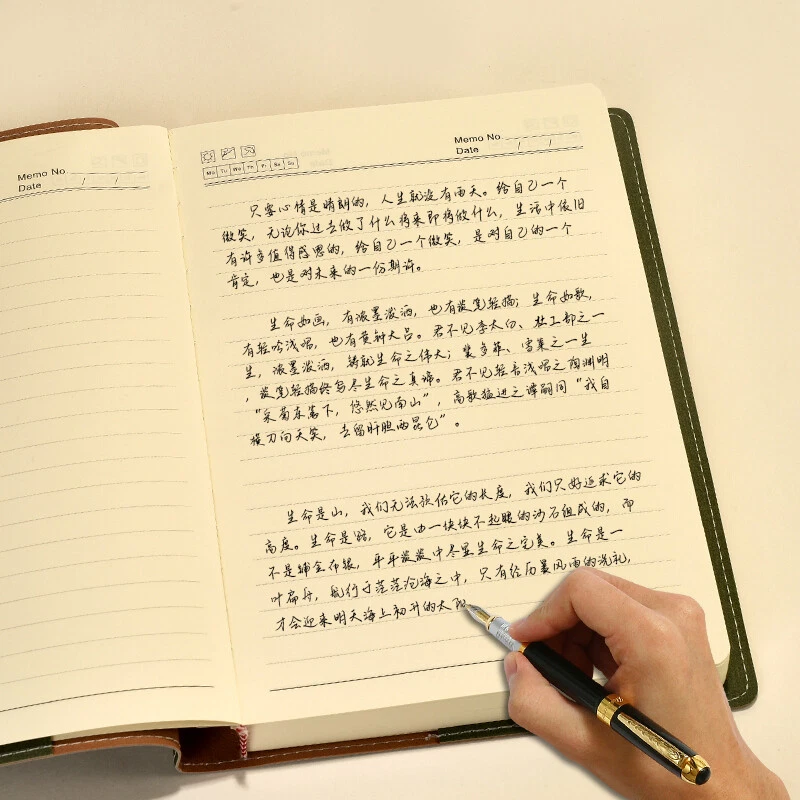 Memo No.
Date / /
Memo No.
Date / /
Mo Tu We Th Fr Sa Su
只要心情是晴朗的，人生就没有雨天。给自己一个
微笑，无论你过去做了什么将来即将做什么，生活中依旧
有许多值得感恩的，给自己一个微笑，是对自己的一个
肯定，也是对未来的一份期许。
生命如画，有浓墨泼洒，也有淡笔轻描；生命如歌，
有轻吟浅唱，也有黄钟大吕。君不见李太白、杜工部之一
生，浓墨泼洒，铸就生命之伟大；裴多菲、雪莱之一生
，淡笔轻描终写尽生命之真谛。君不见轻吝浅唱之陶渊明
“采菊东篱下，悠然见南山”，高歌猛进之谭嗣同“我自
横刀向天笑，去留肝胆两昆仑”。
生命是山，我们无法预估它的长度，我们只好追求它的
高度。生命是路，它是由一块块不起眼的沙石组成的，而
不是铺金布银，平平淡淡中尽显生命之完美。生命是一
叶扁舟，航行于茫茫沧海之中，只有经历暴风雨的洗礼，
才会迎来明天海上初升的太阳